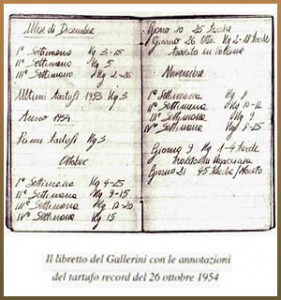 Mese di Dicembre
I° Settimana Kg 3-15
II° Settimana Kg 5
III° Settimana Kg 2-25
Ultimi tartufi 1953 Kg 3
Anno 1954
Primi tartufi Kg 3
Ottobre
I° Settimana Kg 4-25
II° Settimana Kg 9-15
III° Settimana Kg 12-20
IV° Settimana Kg 15
Giorno 10 25
Giorno 26 Ott. Kg 2-
Trovato in
Novembre
I° Settimana Kg 9
II° Settimana Kg 10-12
III° Settimana Kg 9
IV° Settimana Kg 8-25
Giorno 9 Kg 1-4
Giorno 21 45
Il libretto del Gallerini con le annotazioni
del tartufo record del 26 ottobre 1954